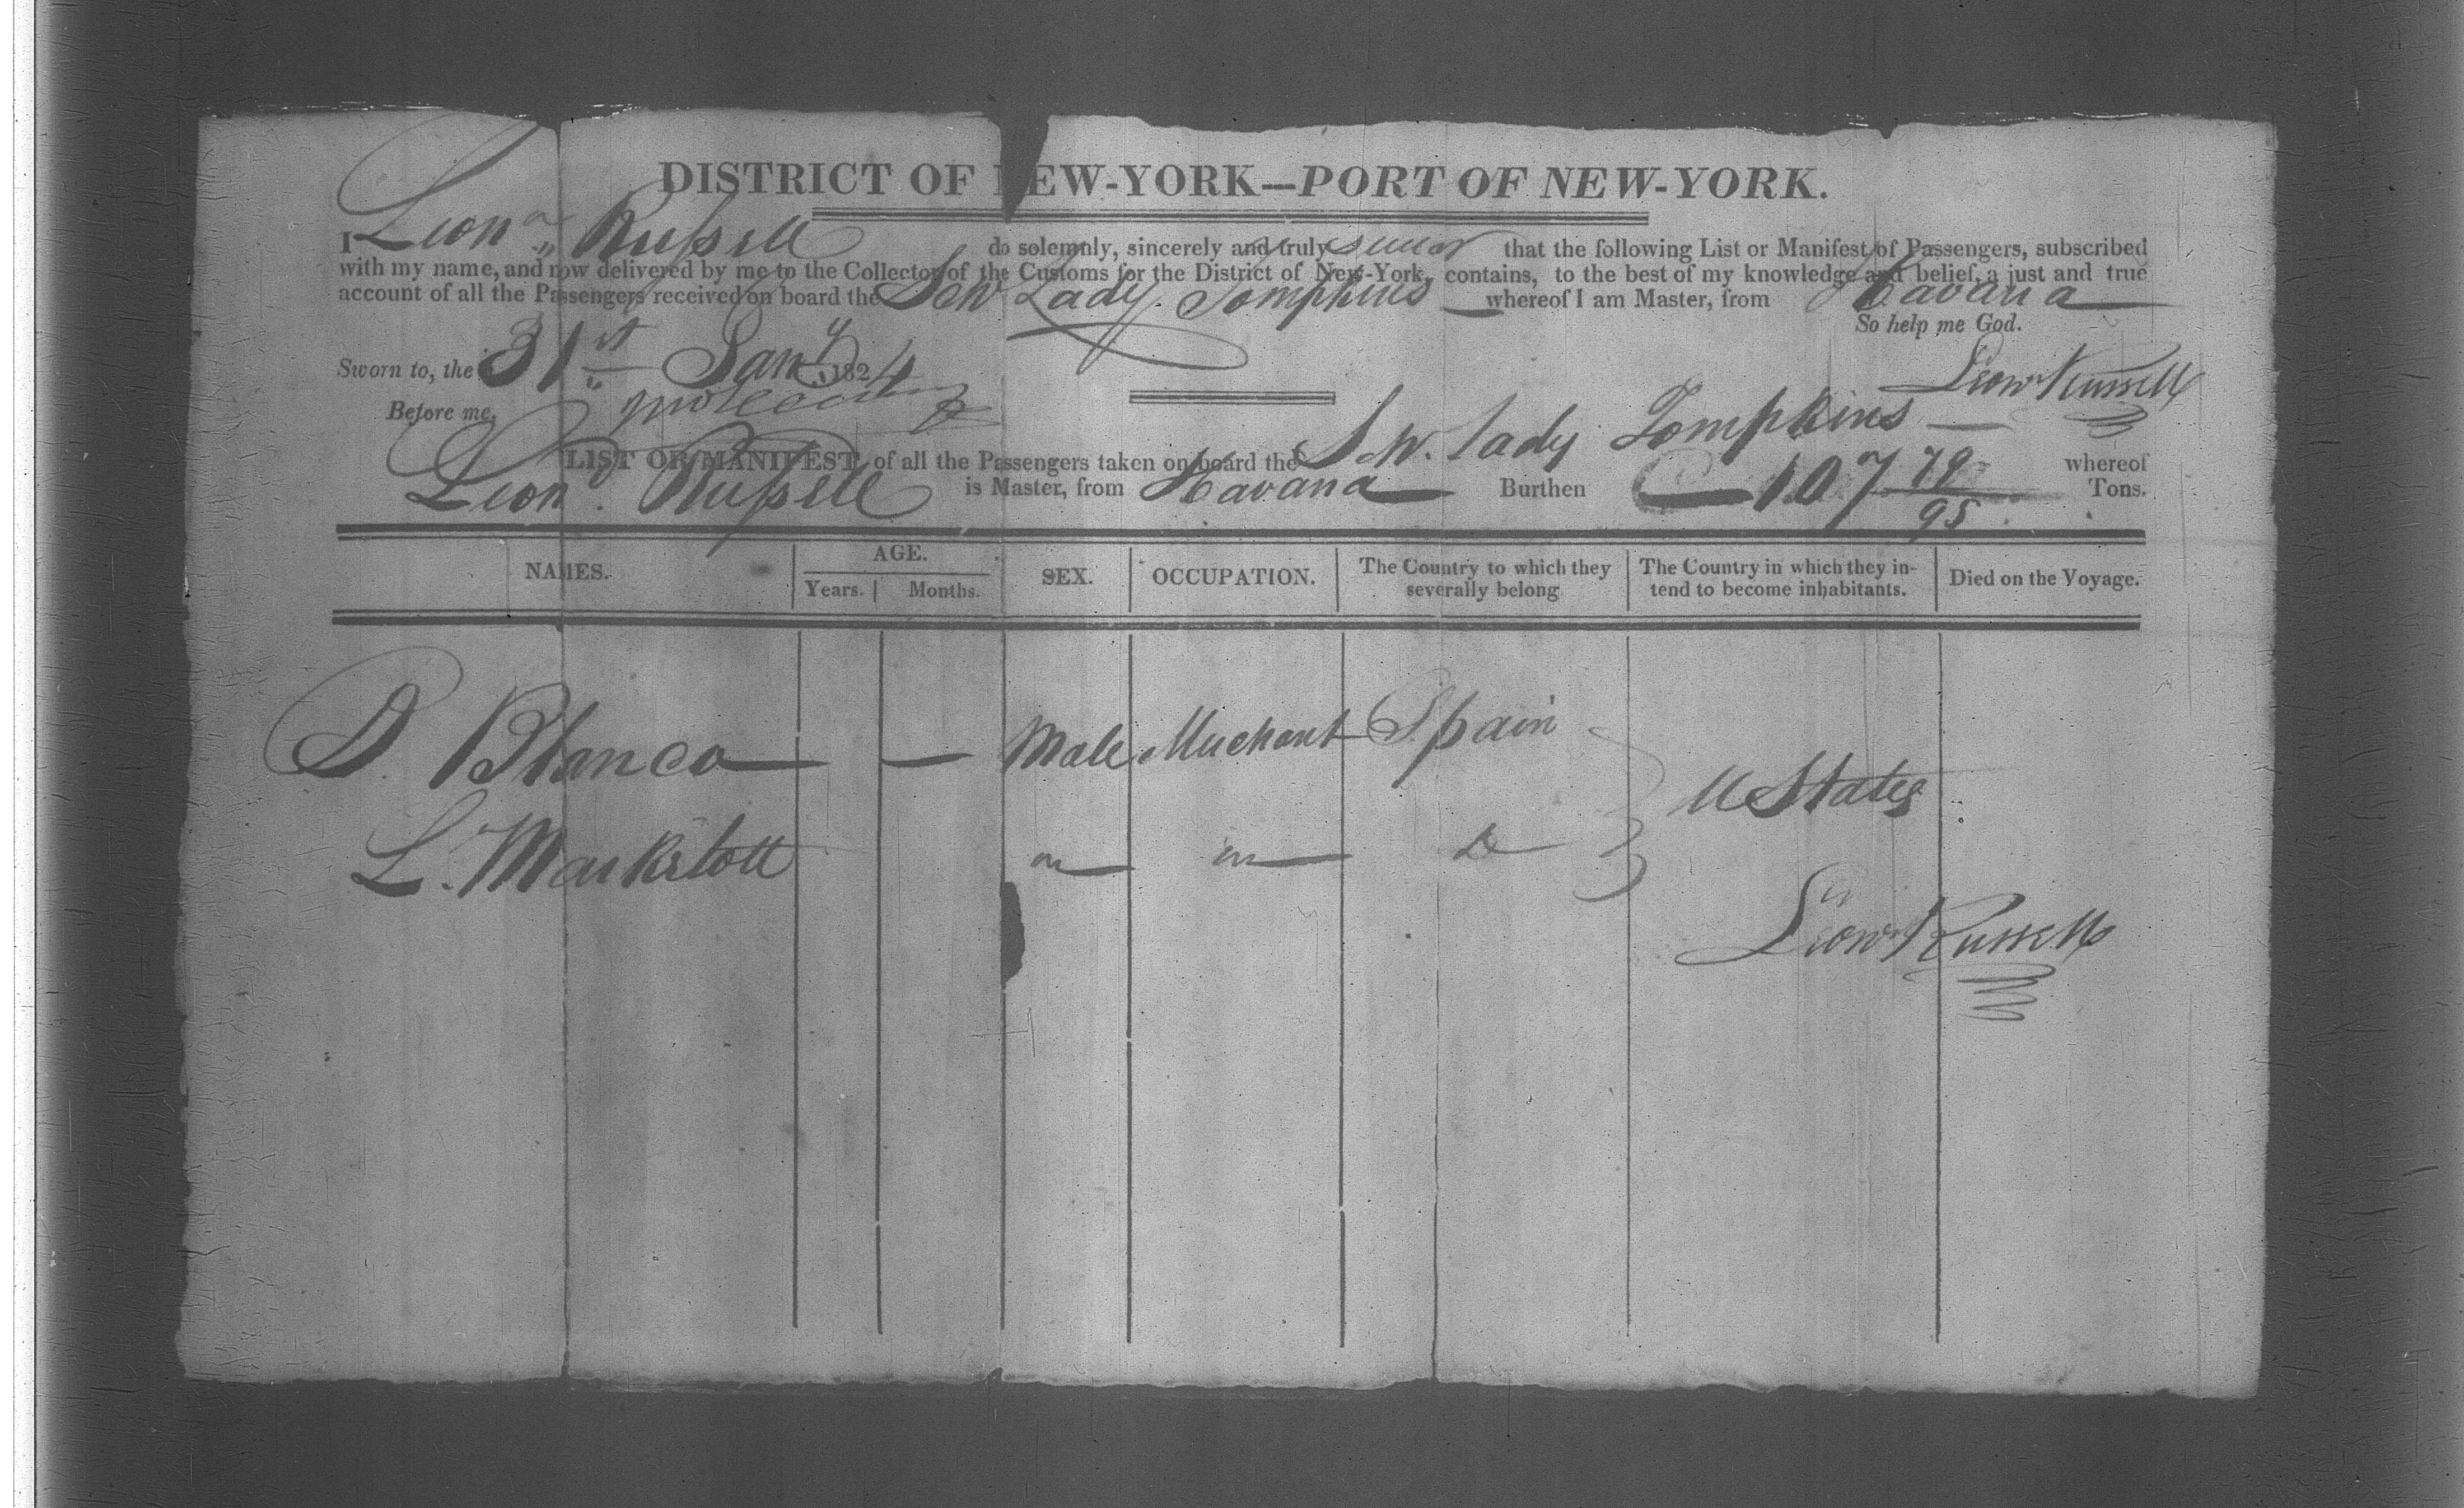 DISTRICT OF NEW-YORK—PORT OF NEW-YORK.
I Leond Russell do solemnly, sincerely and truly swear that the following List or Manifest of Passengers, subscribed
with my name, and now delivered by me to the Collector of the Customs for the District of New-York, contains, to the best of my knowledge and belief, a just and true
account of all the Passengers received on board the Schr Lady Tompkins whereof I am Master, from Havana
So help me God.
Sworn to, the 31st Jany 1824
Leond Russell
Before me,
LIST OR MANIFEST of all the Passengers taken on board the Schr. Lady Tompkins whereof
Leond. Russell is Master, from Havana Burthen 107 79/95 Tons.
NAMES. AGE. SEX. OCCUPATION. The Country to which they severally belong The Country in which they intend to become inhabitants. Died on the Voyage.
Years. Months.
D. Blanco — — Male Merchant Spain
U States
L. Markstott Do
Leond Russell